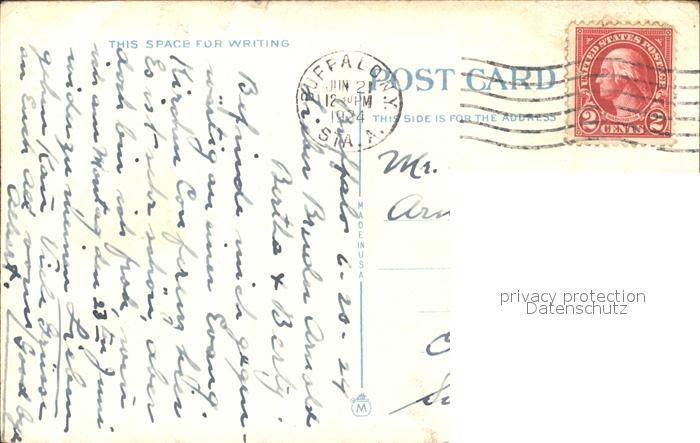 THIS SPACE FOR WRITING
POST CARD
THIS SIDE IS FOR THE ADDRESS
BUFFALO N.Y.
JUN 21
12 PM
1924
STA. A.
UNITED STATES POSTAGE
2 CENTS 2
MADE IN USA
M
Buffalo 6-20-24
Lieber Bruder Arnold
Bertha & Berty.
Befinde mich gegen-
wärtig an einer Evang.
Kirchen Conferenz hier
Es ist sehr schön, aber
doch bin ich froh, wen
ich am Montag den 23ten Juni
wieder zu meinen Lieben
gehen kan. Viele Grüsse
an Euch all von
Good bye
Albert.
Mr.
privacy protection
Datenschutz